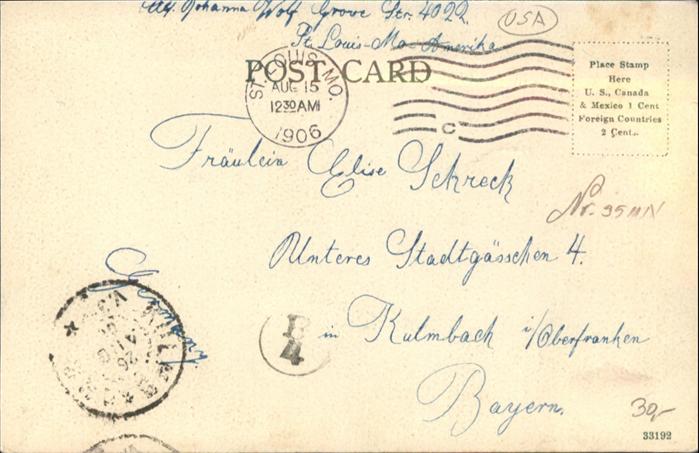 Johanna Wolf Grove Str. 4022
USA
St. Louis-Mo. Amerika
POST CARD
ST. LOUIS, MO.
AUG 15
12 30 AM
1906
C
Place Stamp
Here
U. S., Canada
& Mexico 1 Cent
Foreign Countries
2 Cent..
Fräulein Elise Schreck
Nr.
Unteres Stadtgässchen 4.
Germany
B
4
in Kulmbach i/Oberfranken
Bayern.
30,-
33192